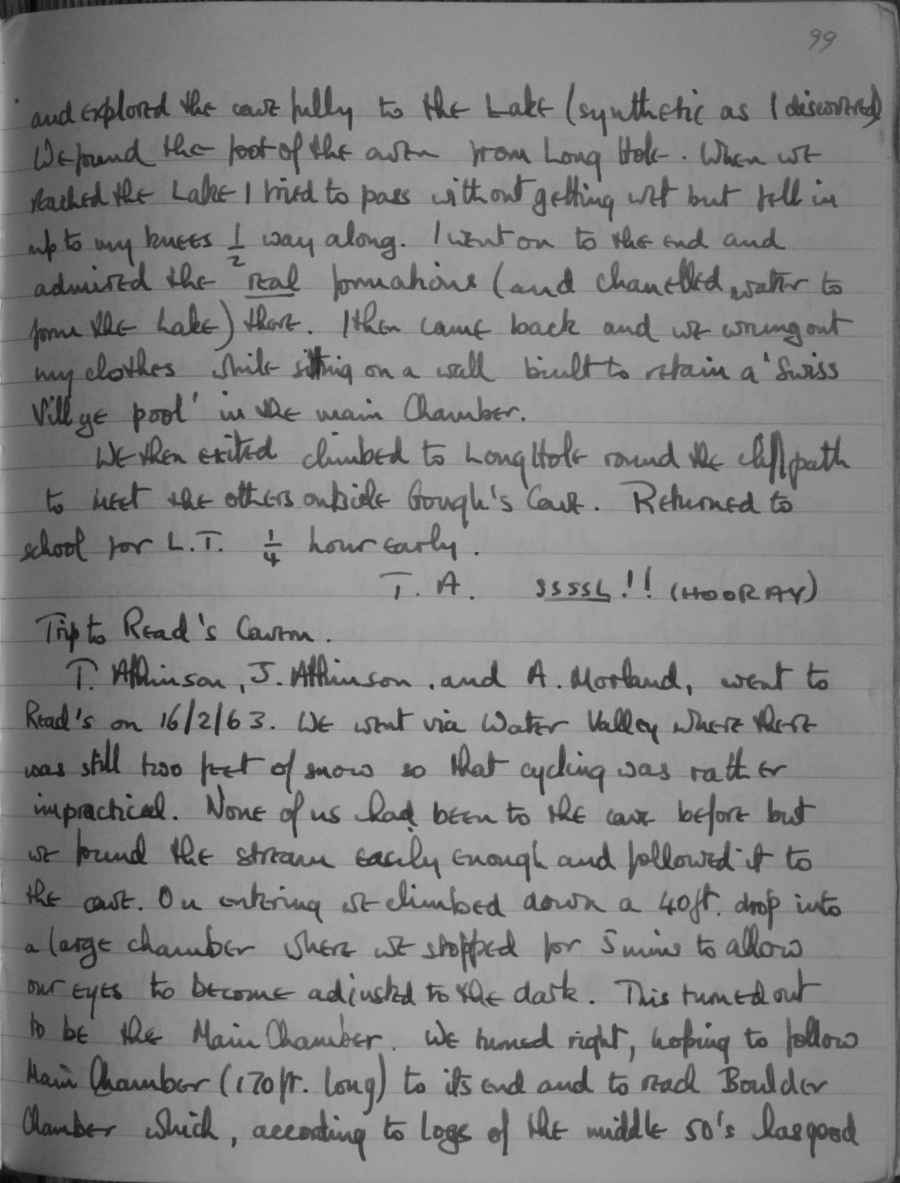 99
and explored the cave fully to the Lake (synthetic as I discovered)
We found the foot of the aven from Long Hole. When we
reached the Lake I tried to pass without getting wet but fell in
up to my knees 1/2 way along. I went on to the end and
admired the real formations (and chanelled water to
form the Lake) there. I then came back and we wrung out
my clothes while sitting on a wall built to retain a 'Swiss
Villge pool' in the main Chamber.
We then exited climbed to Long Hole round the cliff path
to meet the others outside Gough's Cave. Returned to
school for L.T. 1/4 hour early.
T. A. SSSSL!! (HOORAY)
Trip to Read's Cavern.
T. Atkinson, J. Atkinson, and A. Morland, went to
Read's on 16/2/63. We went via Water Valley where there
was still two feet of snow so that cycling was rather
impractical. None of us had been to the cave before but
we found the stream easily enough and followed it to
the cave. On entering we climbed down a 40ft. drop into
a large chamber where we stopped for 5 mins to allow
our eyes to become adjusted to the dark. This turned out
to be the Main Chamber. We turned right, hoping to follow
Main Chamber (170ft. long) to its end and to reach Boulder
Chamber which, according to logs of the middle 50's has good